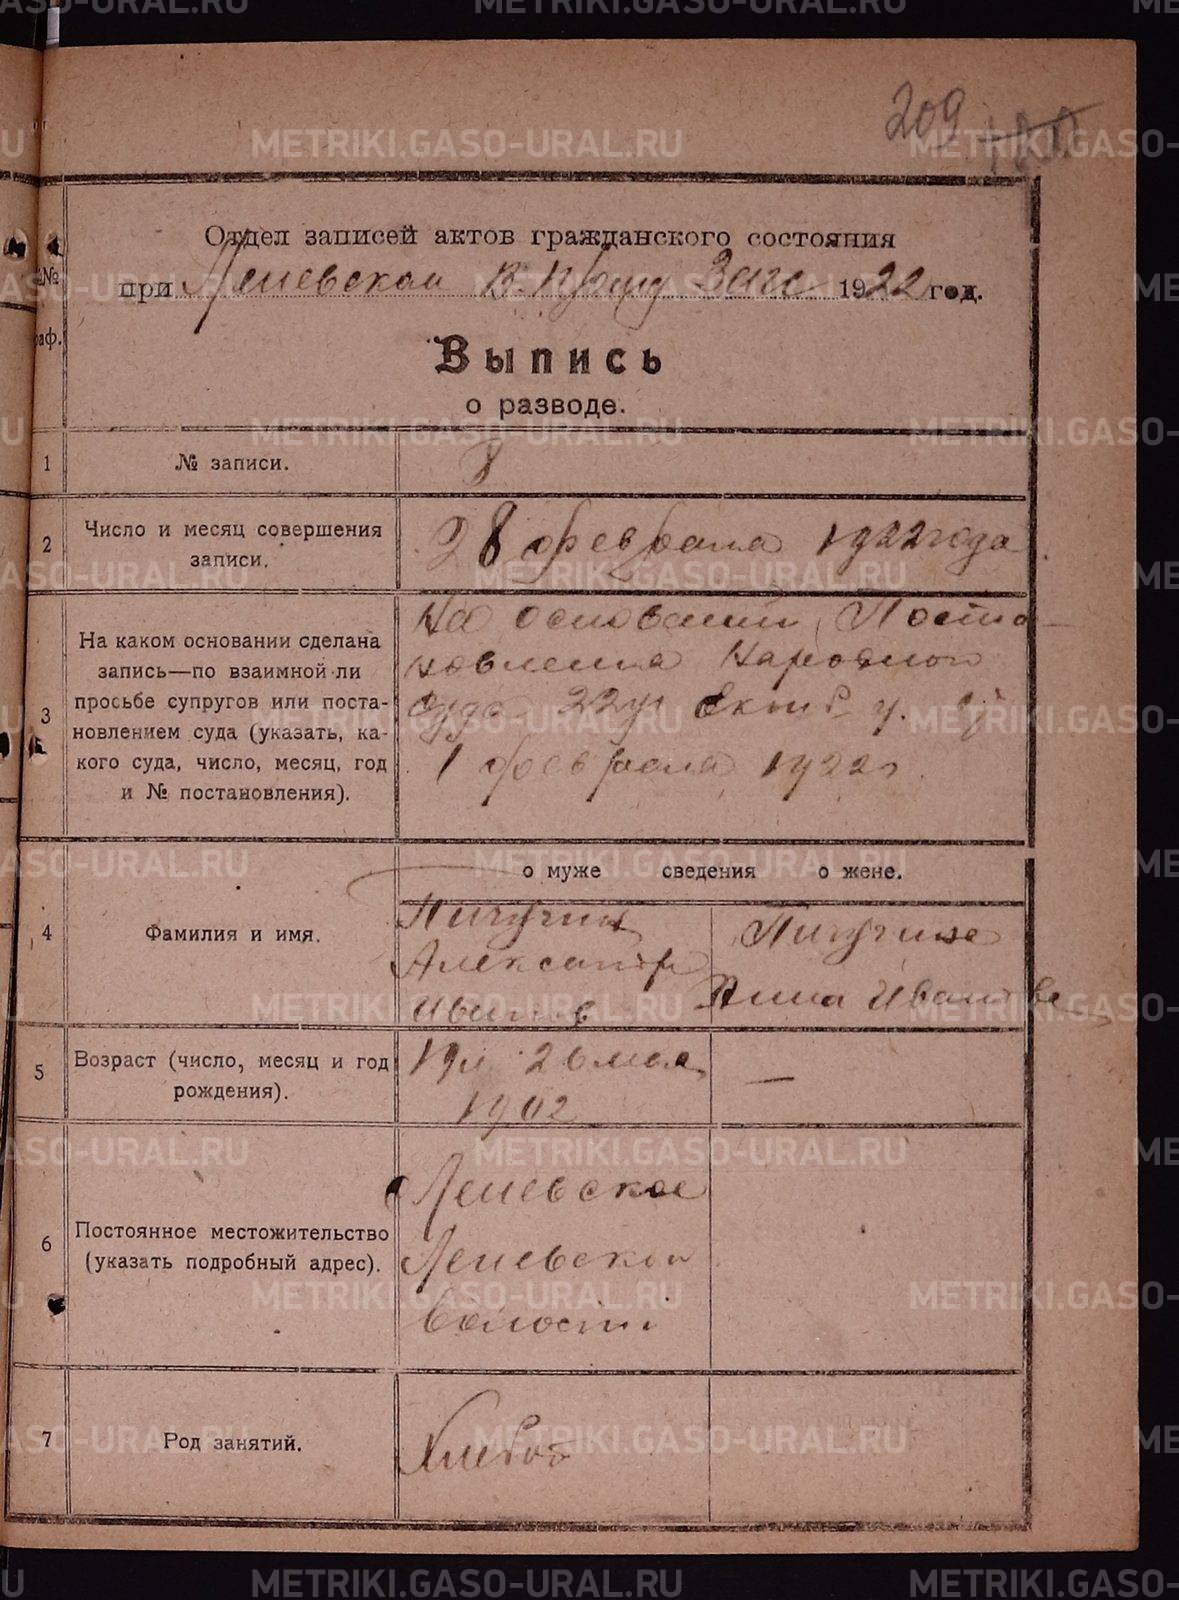 209
Отдел записей актов гражданского состояния
при Леневском В. Загс 1922 год.
№
аф.
Выпись
о разводе.
1 № записи. 8
2 Число и месяц совершения записи. 28 февраля 1922 года
3 На каком основании сделана
запись—по взаимной ли
просьбе супругов или поста-
новлением суда (указать, ка-
кого суда, число, месяц, год
и № постановления).
На основании Поста-
новления Народного
Суда 22 уч Екат. у. от
1 февраля 1922 г.
о муже сведения о жене.
4 Фамилия и имя.
Пичугин
Александр
Иванов
Пичугина
Анна Иванова
5 Возраст (число, месяц и год
рождения).
19 л 26 мая
1902
—
6 Постоянное местожительство
(указать подробный адрес).
Леневское
Леневской
волости
7 Род занятий.
Хлебоп
METRIKI.GASO-URAL.RU